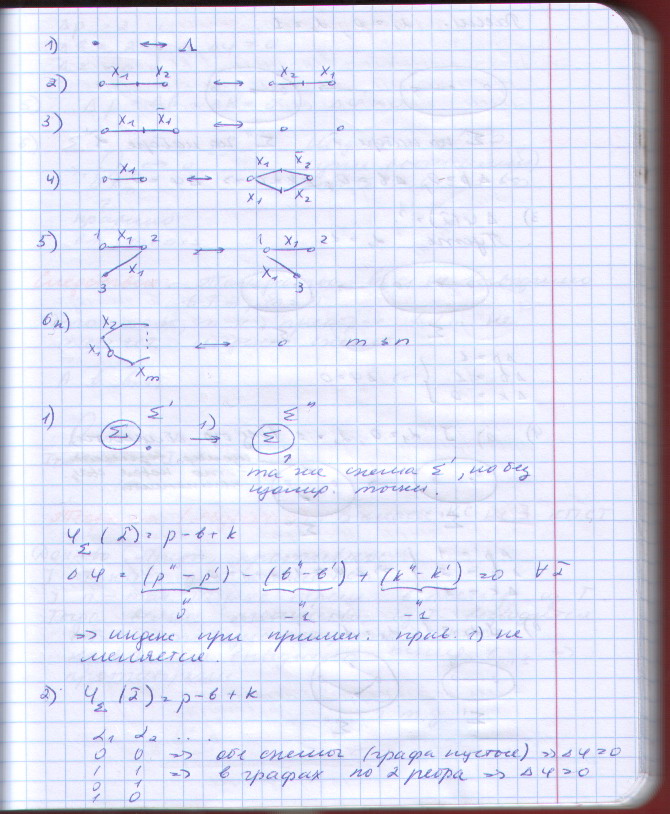 1) • ↔ Λ
2) x₁ x₂ ↔ x₂ x₁
3) x₁ x̄₁ ↔
4) x₁ ↔ x₁ x̄₂ x₁ x₂
5) 1 x₁ 2 x₁ 3 ↔ 1 x₁ 2 x₁ 3
6n) x₂ x₁ xₘ ↔ m ≤ n
1) Σ Σ' 1) → Σ Σ"
та же схема Σ', но без
изолир. точки.
Ψ_Σ(α̃) = p - в + k
ΔΨ = (p" - p') - (в" - в') + (k" - k') = 0 ∀ α̃
0 -1 -1
=> индекс при примен. прав. 1) не
меняется.
2) Ψ_Σ(α̃) = p - в + k
α₁ α₂ ...
0 0 => обе схемы (графа пустые) => ΔΨ = 0
1 1 => в графах по 2 ребра => ΔΨ = 0
0 1
1 0